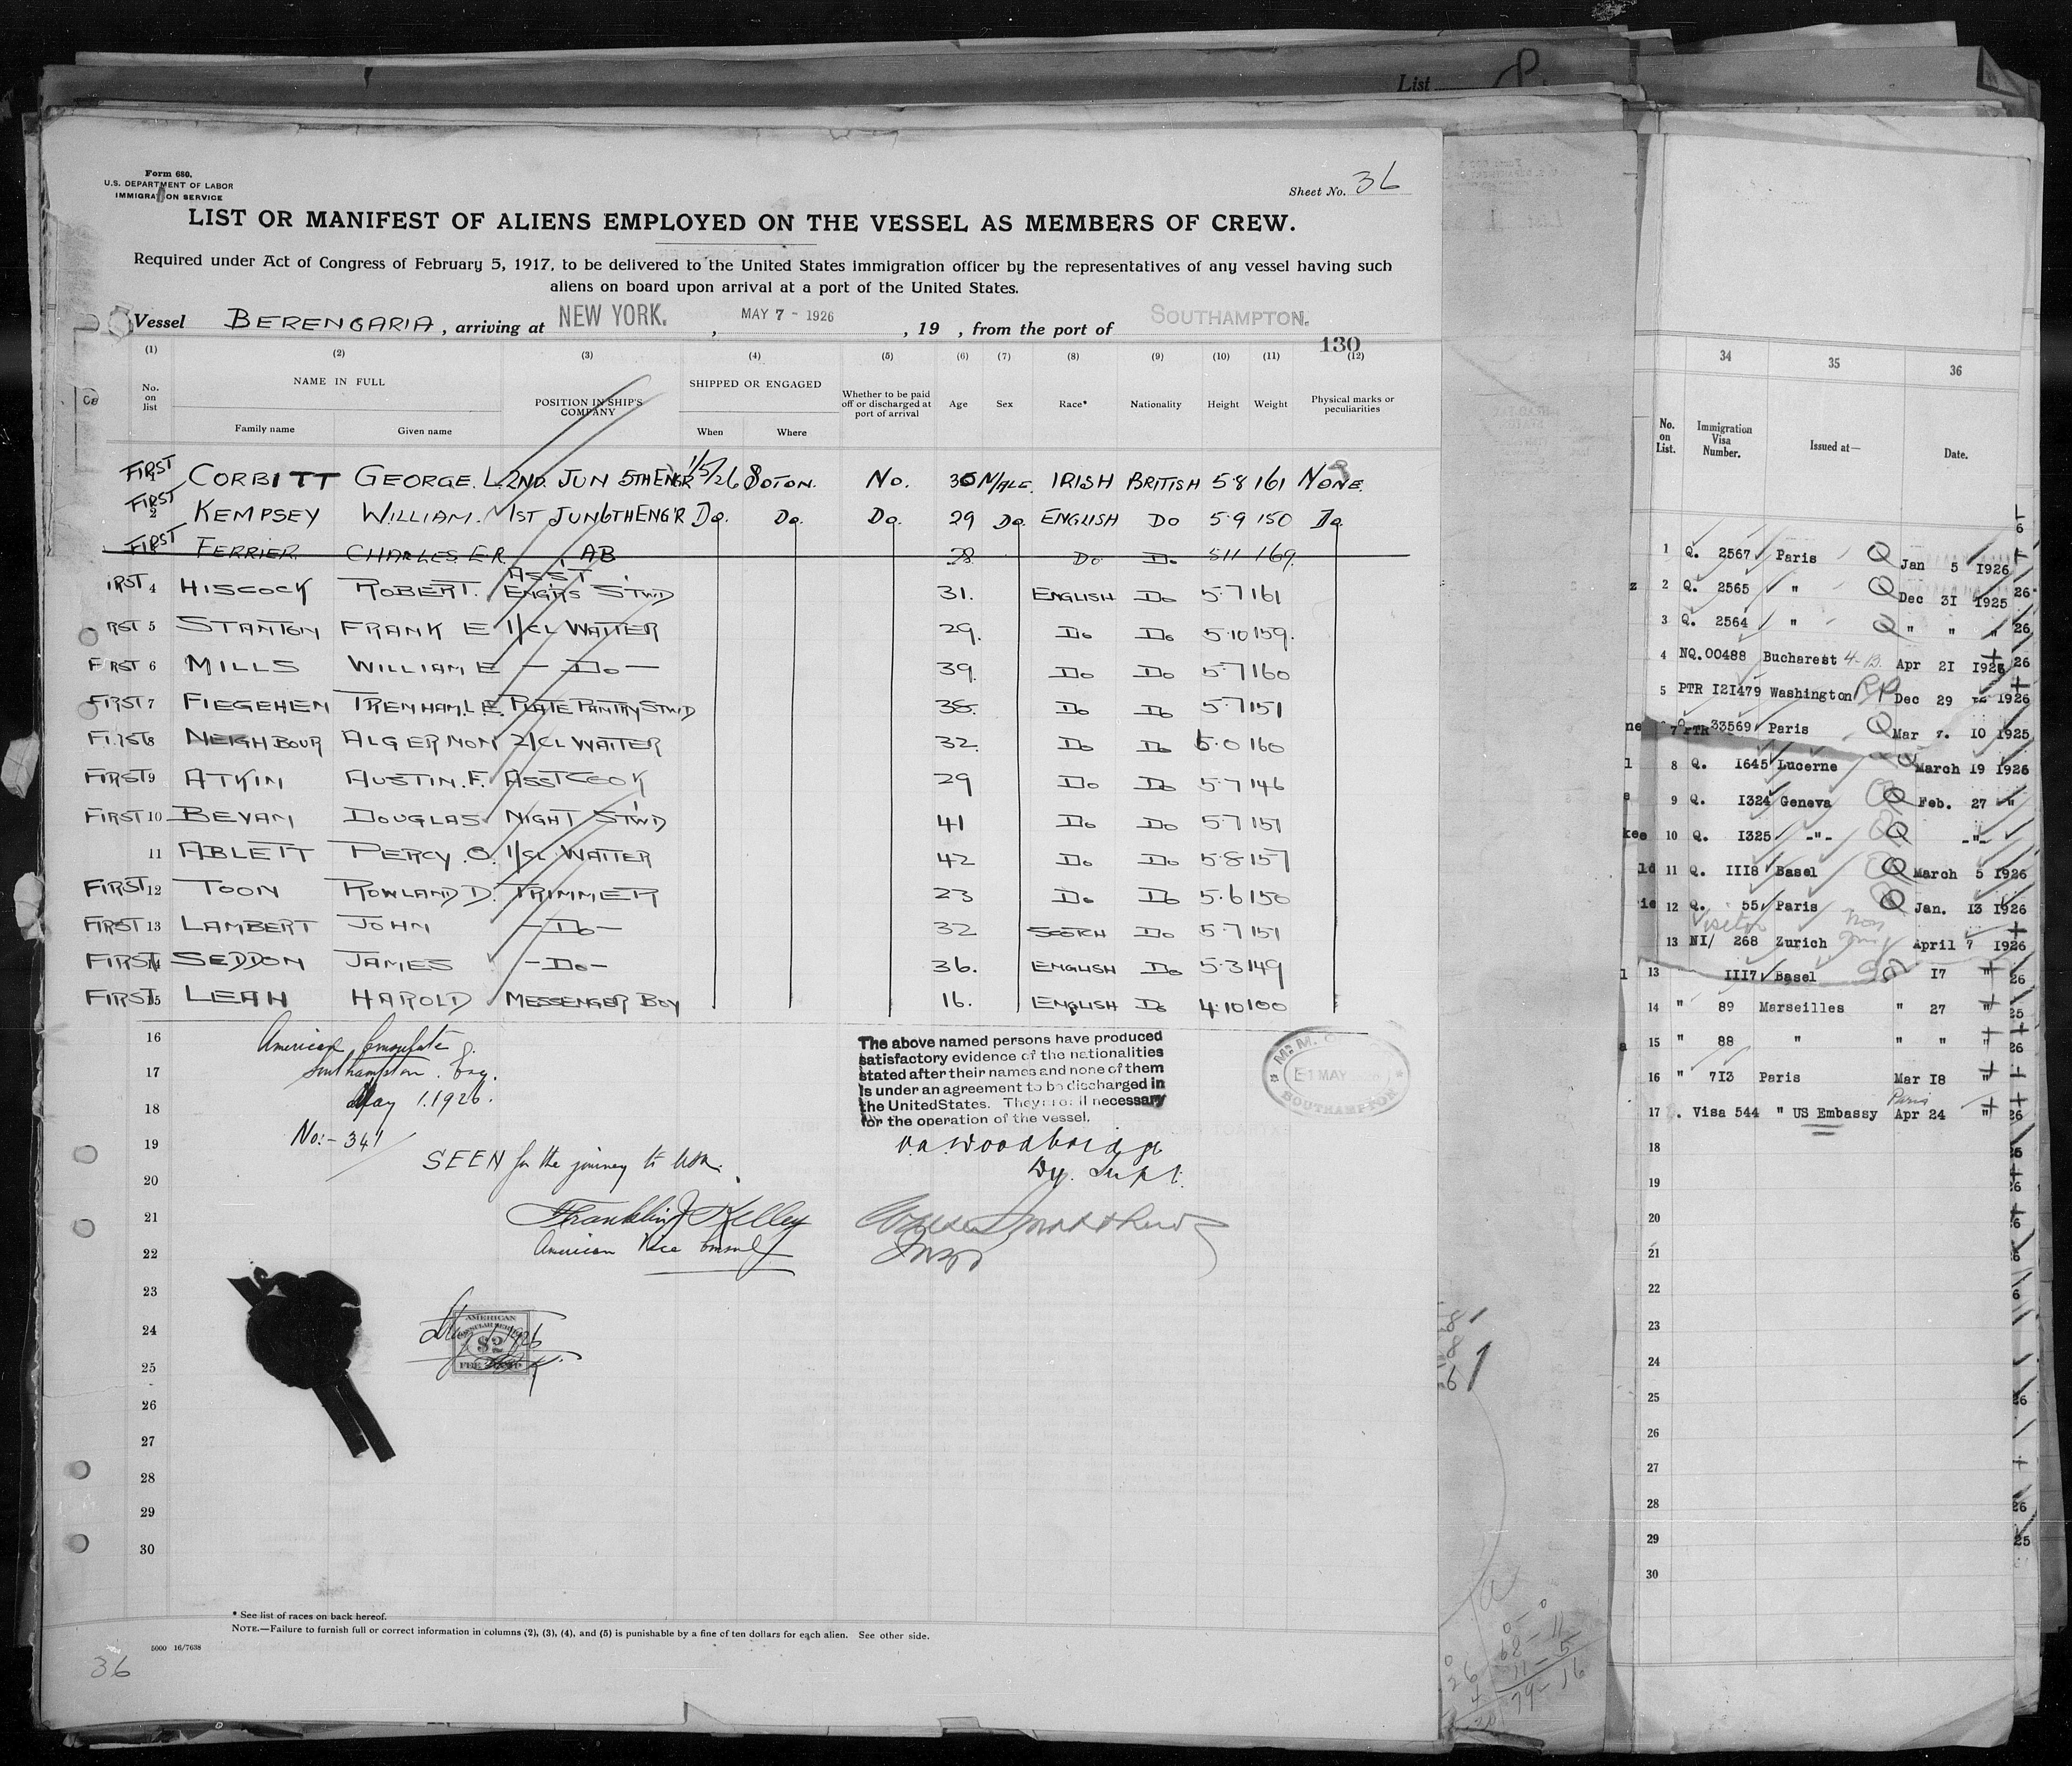 List
Form 680.
U.S. DEPARTMENT OF LABOR
IMMIGRATION SERVICE
Sheet No. 36
LIST OR MANIFEST OF ALIENS EMPLOYED ON THE VESSEL AS MEMBERS OF CREW.
Required under Act of Congress of February 5, 1917, to be delivered to the United States immigration officer by the representatives of any vessel having such
aliens on board upon arrival at a port of the United States.
Vessel BERENGARIA, arriving at NEW YORK. , MAY 7 - 1926 , 19 , from the port of SOUTHAMPTON.
130
(1) (2) (3) (4) (5) (6) (7) (8) (9) (10) (11) (12)
No. on list NAME IN FULL POSITION IN SHIP'S COMPANY SHIPPED OR ENGAGED Whether to be paid off or discharged at port of arrival Age Sex Race* Nationality Height Weight Physical marks or peculiarities
Family name Given name When Where
FIRST 1 CORBITT GEORGE. L. 2ND JUN 5TH ENGR 1/5/26 SOTON. No. 30 MALE. IRISH BRITISH 5·8 161 NONE.
FIRST 2 KEMPSEY WILLIAM. 1ST JUN 6TH ENG'R Do. Do. Do. 29 Do. ENGLISH DO 5·9 150 Do.
FIRST FERRIER CHARLES E.R. AB 28 Do Do 5 11 169.
IRST 4 HISCOCK ROBERT. ASS'T ENGRS STWD 31. ENGLISH Do 5·7 161
RST 5 STANTON FRANK E 1/CL WAITER 29. Do Do 5·10 159.
FIRST 6 MILLS WILLIAM E — Do — 39. Do Do 5·7 160
FIRST 7 FIEGEHEN TRENHAM. L.E. PLATE PANTRY STWD 38. Do Do 5·7 151
FIRST 8 NEIGHBOUR ALGERNON 2/CL WAITER 32. Do Do 6·0 160
FIRST 9 ATKIN AUSTIN. F. ASST COOK 29 Do Do 5·7 146
FIRST 10 BEVAN DOUGLAS NIGHT STWD 41 Do Do 5·7 151
11 ABLETT PERCY. O. 1/CL. WAITER 42 Do Do 5·8 157
FIRST 12 TOON ROWLAND D. TRIMMER 23 Do Do 5·6 150
FIRST 13 LAMBERT JOHN — Do — 32 SCOTCH Do 5·7 151
FIRST 14 SEDDON JAMES — Do — 36. ENGLISH Do 5·3 149
FIRST 15 LEAH HAROLD MESSENGER BOY 16. ENGLISH Do 4·10 100
16
17
18
19
20
21
22
23
24
25
26
27
28
29
30
American Consulate
Southampton. Eng.
May 1. 1926.
No:- 341
SEEN for the journey to USA.
Franklin J Kelley
American Vice Consul
The above named persons have produced
satisfactory evidence of the nationalities
stated after their names and none of them
is under an agreement to be discharged in
the UnitedStates. They are all necessary
for the operation of the vessel.
Woodbridge
Dy. Supt.
M. M. O
1 MAY
SOUTHAMPTON
AMERICAN
CONSULAR SERVICE
$2
FEE STAMP
May 1 1926
* See list of races on back hereof.
NOTE.—Failure to furnish full or correct information in columns (2), (3), (4), and (5) is punishable by a fine of ten dollars for each alien. See other side.
5000 16/7638
36
34 35 36
No. on List. Immigration Visa Number. Issued at— Date.
1 Q. 2567 Paris Q Jan 5 1926
2 Q. 2565 " Q Dec 31 1925
3 Q. 2564 " Q " " "
4 NQ. 00488 Bucharest Apr 21 1926
5 PTR 121479 Washington RP Dec 29 1926
7 PTR 33569 Paris Q Mar 10 1925
8 Q. 1645 Lucerne Q March 19 1926
9 Q. 1324 Geneva Q Feb. 27 "
10 Q. 1325 -"- Q -"-
11 Q. III8 Basel Q March 5 1926
12 Q. 55 Paris Q Jan. 13 1926
Visitor
13 NI/ 268 Zurich April 7 1926
13 III7 Basel 17 "
14 " 89 Marseilles " 27 "
15 " 88 " " " "
16 " 713 Paris Mar 18 "
Paris
17 . Visa 544 " US Embassy Apr 24 "
18
19
20
21
22
23
24
25
26
27
28
29
30
68 - 11
11 - 5
79 - 16